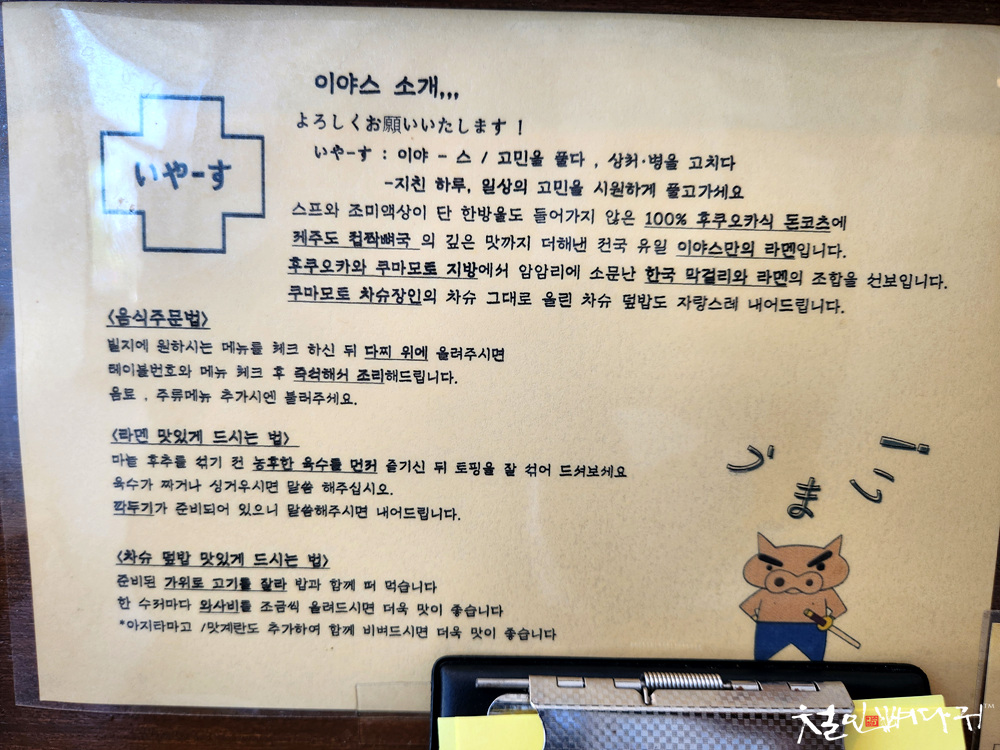 이야스 소개,,,
よろしくお願いいたします！
いやーす
いやーす : 이야 - 스 / 고민을 풀다 , 상처·병을 고치다
-지친 하루, 일상의 고민을 시원하게 풀고가세요
스프와 조미액상이 단 한방울도 들어가지 않은 100% 후쿠오카식 돈코츠에
제주도 접짝뼈국 의 깊은 맛까지 더해낸 전국 유일 이야스만의 라멘입니다.
후쿠오카와 쿠마모토 지방에서 암암리에 소문난 한국 막걸리와 라멘의 조합을 선보입니다.
쿠마모토 차슈장인의 차슈 그대로 올린 차슈 덮밥도 자랑스레 내어드립니다.
<음식주문법>
빌지에 원하시는 메뉴를 체크 하신 뒤 다찌 위에 올려주시면
테이블번호와 메뉴 체크 후 즉석해서 조리해드립니다.
음료 , 주류메뉴 추가시엔 불러주세요.
<라멘 맛있게 드시는 법>
마늘 후추를 섞기 전 농후한 육수를 먼저 즐기신 뒤 토핑을 잘 섞어 드셔보세요
육수가 짜거나 싱거우시면 말씀 해주십시오.
깍두기가 준비되어 있으니 말씀해주시면 내어드립니다.
<차슈 덮밥 맛있게 드시는 법>
준비된 가위로 고기를 잘라 밥과 함께 떠 먹습니다
한 수저마다 와사비를 조금씩 올려드시면 더욱 맛이 좋습니다
*아지타마고 /맛계란도 추가하여 함께 비벼드시면 더욱 맛이 좋습니다
うまい!
철인뼈다귀™